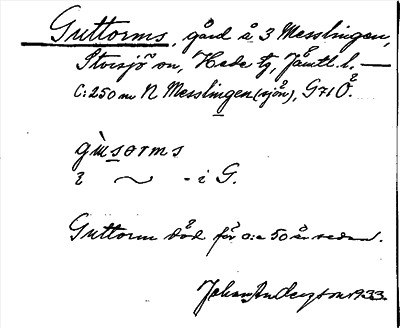 Guttorms, gård å 3 Messlingen,
Storsjö sn, Hede tg, Jämtl. l. —
C:250 m N Messlingen (sjön), G71 Ö.
gùsorms
~ - i G.
Guttorm död för c:a 50 år sedan.
Johan Anderzson 1933.